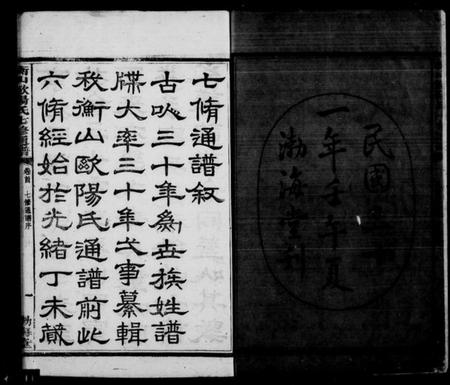 民國三十
一年壬午夏
渤海堂刊
七脩通譜叙
古以三十年為世族姓譜
牒大率三十年弌事纂輯
我衡山歐陽氏通譜前此
六脩經始於光緒丁未蕆
衡山歐陽氏七修通譜
卷首
七修通譜序
一
渤海堂